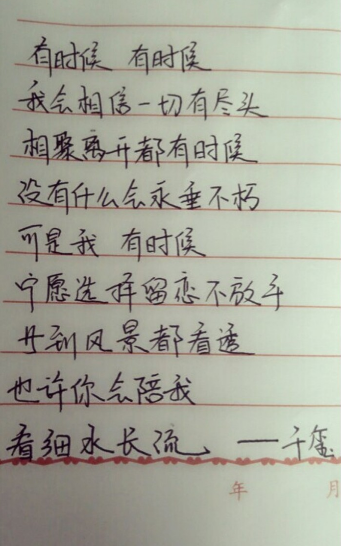 有时候 有时候
我会相信一切有尽头
相聚离开都有时候
没有什么会永垂不朽
可是我 有时候
宁愿选择留恋不放手
等到风景都看透
也许你会陪我
看细水长流 ——千玺
年 月